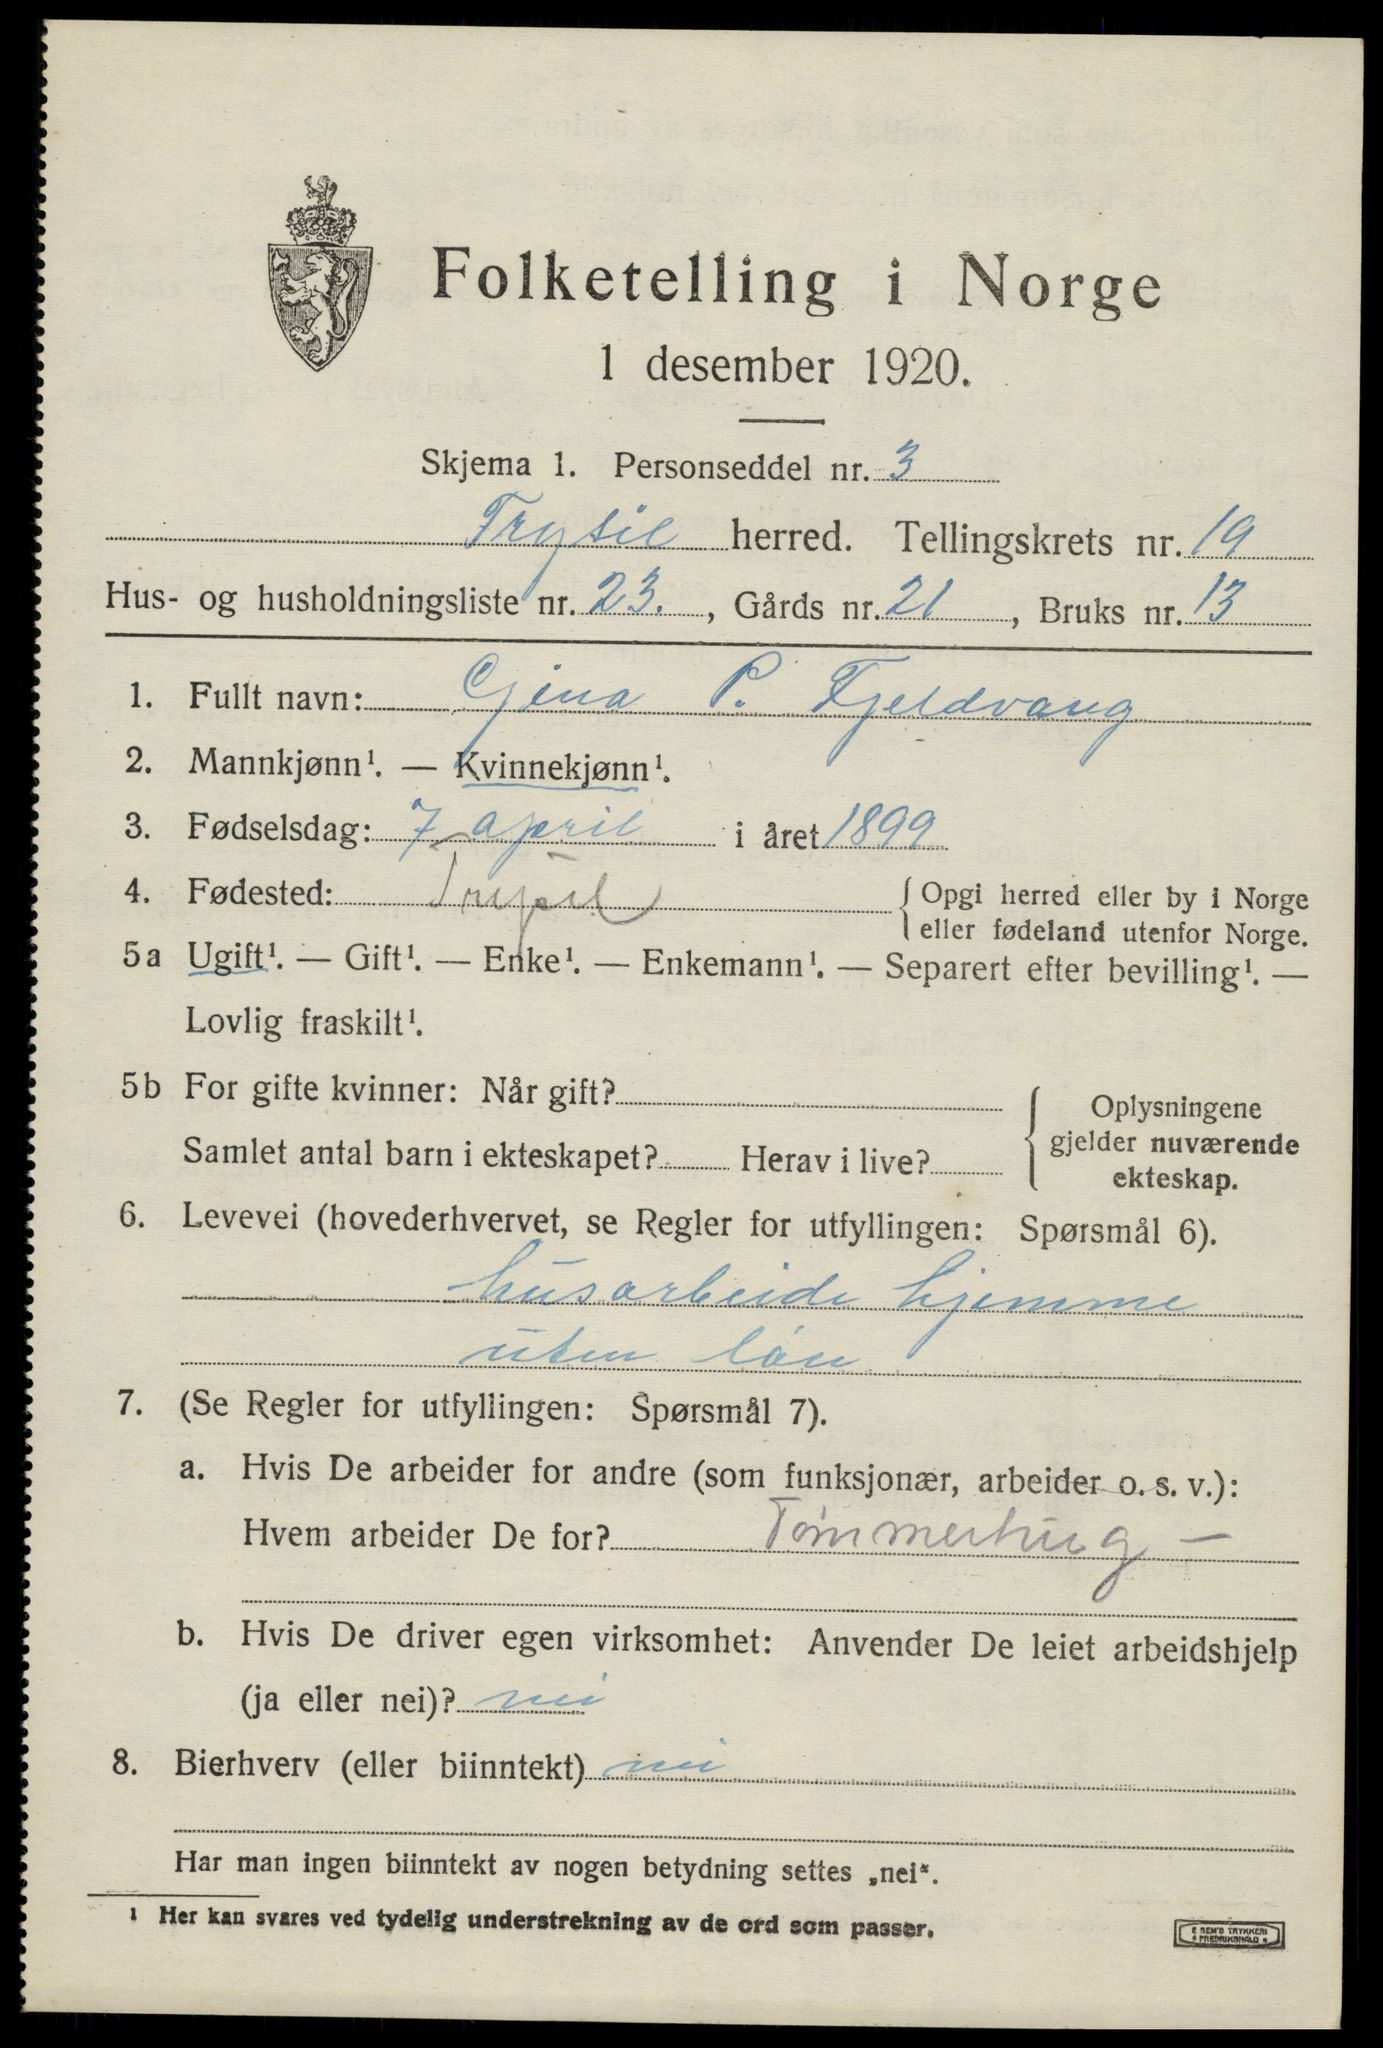 Folketelling i Norge
1 desember 1920.
Skjema 1. Personseddel nr. 3
Trysil herred. Tellingskrets nr. 19
Hus- og husholdningsliste nr. 23. , Gårds nr. 21 , Bruks nr. 13
1. Fullt navn: Gjina P. Fjeldvang
2. Mannkjønn¹. — Kvinnekjønn¹.
3. Fødselsdag: 7 april i året 1899
4. Fødested: Trysil { Opgi herred eller by i Norge
eller fødeland utenfor Norge.
5a Ugift¹. — Gift¹. — Enke¹. — Enkemann¹. — Separert efter bevilling¹. —
Lovlig fraskilt¹.
5b For gifte kvinner: Når gift?
Samlet antal barn i ekteskapet? Herav i live?
{ Oplysningene
gjelder nuværende
ekteskap.
6. Levevei (hovederhvervet, se Regler for utfyllingen: Spørsmål 6).
husarbeide hjemme
uten løn
7. (Se Regler for utfyllingen: Spørsmål 7).
a. Hvis De arbeider for andre (som funksjonær, arbeider o. s. v.):
Hvem arbeider De for? Tømmerhug —
b. Hvis De driver egen virksomhet: Anvender De leiet arbeidshjelp
(ja eller nei)? nei
8. Bierhverv (eller biinntekt) nei
Har man ingen biinntekt av nogen betydning settes „nei“.
¹ Her kan svares ved tydelig understrekning av de ord som passer.
E SEM'S TRYKKERI
FREDRIKSHALD